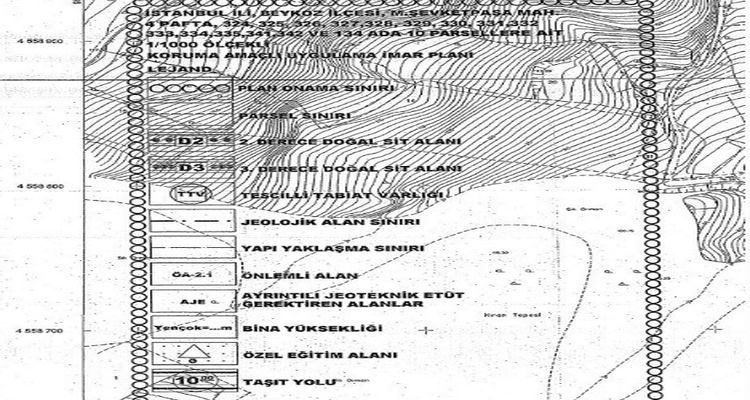 İSTANBUL İLİ, BEYKOZ İLÇESİ, M.ŞEVKETPAŞA MAH.
4 PAFTA, 324, 325, 326, 327,328, 329, 330, 331,332
333,334,335,341,342 VE 134 ADA 10 PARSELLERE AİT
1/1000 ÖLÇEKLİ
KORUMA AMAÇLI UYGULAMA İMAR PLANI
LEJAND
PLAN ONAMA SINIRI
PARSEL SINIRI
D2 2. DERECE DOĞAL SİT ALANI
D3 3. DERECE DOĞAL SİT ALANI
TTV TESCİLLİ TABİAT VARLIĞI
JEOLOJİK ALAN SINIRI
YAPI YAKLAŞMA SINIRI
ÖA-2.1 ÖNLEMLİ ALAN
AJE AYRINTILI JEOTEKNİK ETÜT
GEREKTİREN ALANLAR
Yençok=...m BİNA YÜKSEKLİĞİ
ÖZEL EĞİTİM ALANI
10.00 TAŞIT YOLU
4 558 900
4 558 800
4 558 700
Kıran Tepesi